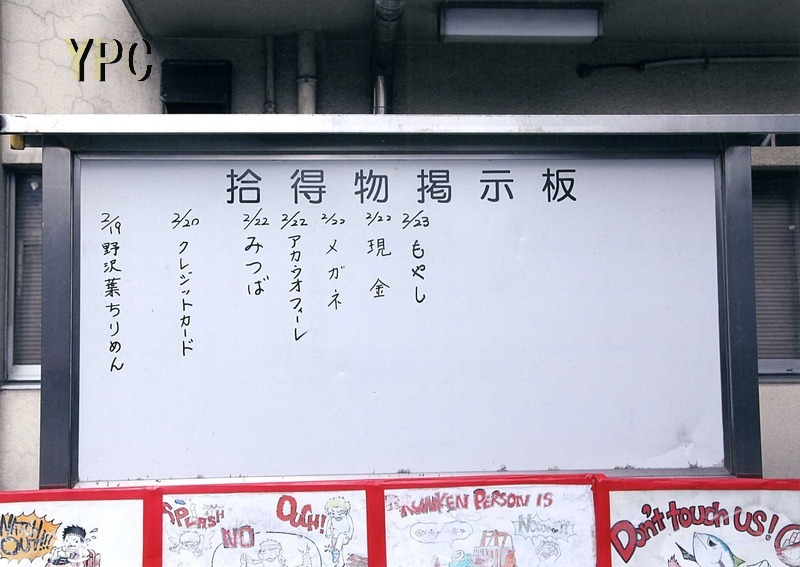 YPC
拾得物掲示板
2/19 野沢菜ちりめん
2/20 クレジットカード
2/22 みつば
2/22 アカウオフィーレ
2/22 メガネ
2/22 現金
2/23 もやし
WATCH OUT!!!
SPLASH
OUCH!
NO
DRUNKEN PERSON IS
Don't touch US!